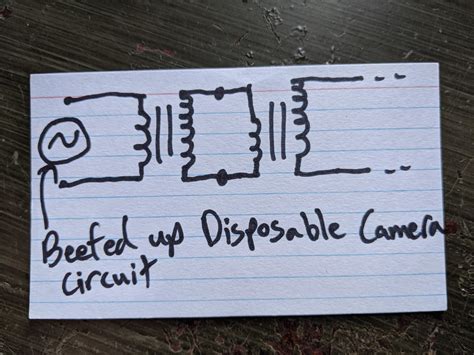 Beefed up Disposable Camera
circuit